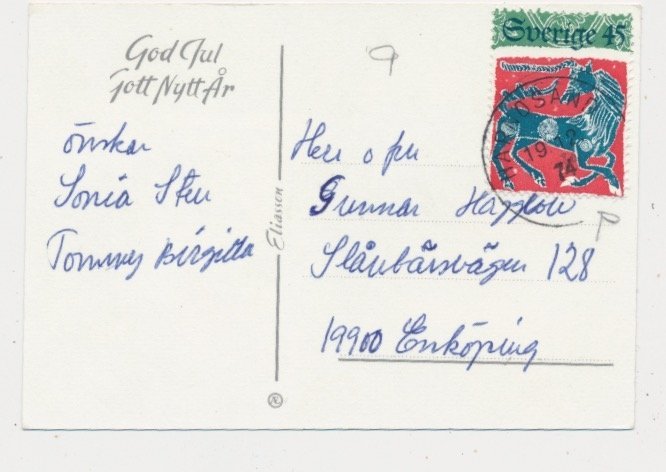 God Jul
Gott Nytt År
önskar
Sonia Sten
Tommy Birgitta
Eliasson
Sverige 45
HÄRNÖSAND
19 12
74
Herr o fru
Gunnar Hägglöw
Slånbärsvägen 128
19900 Enköping